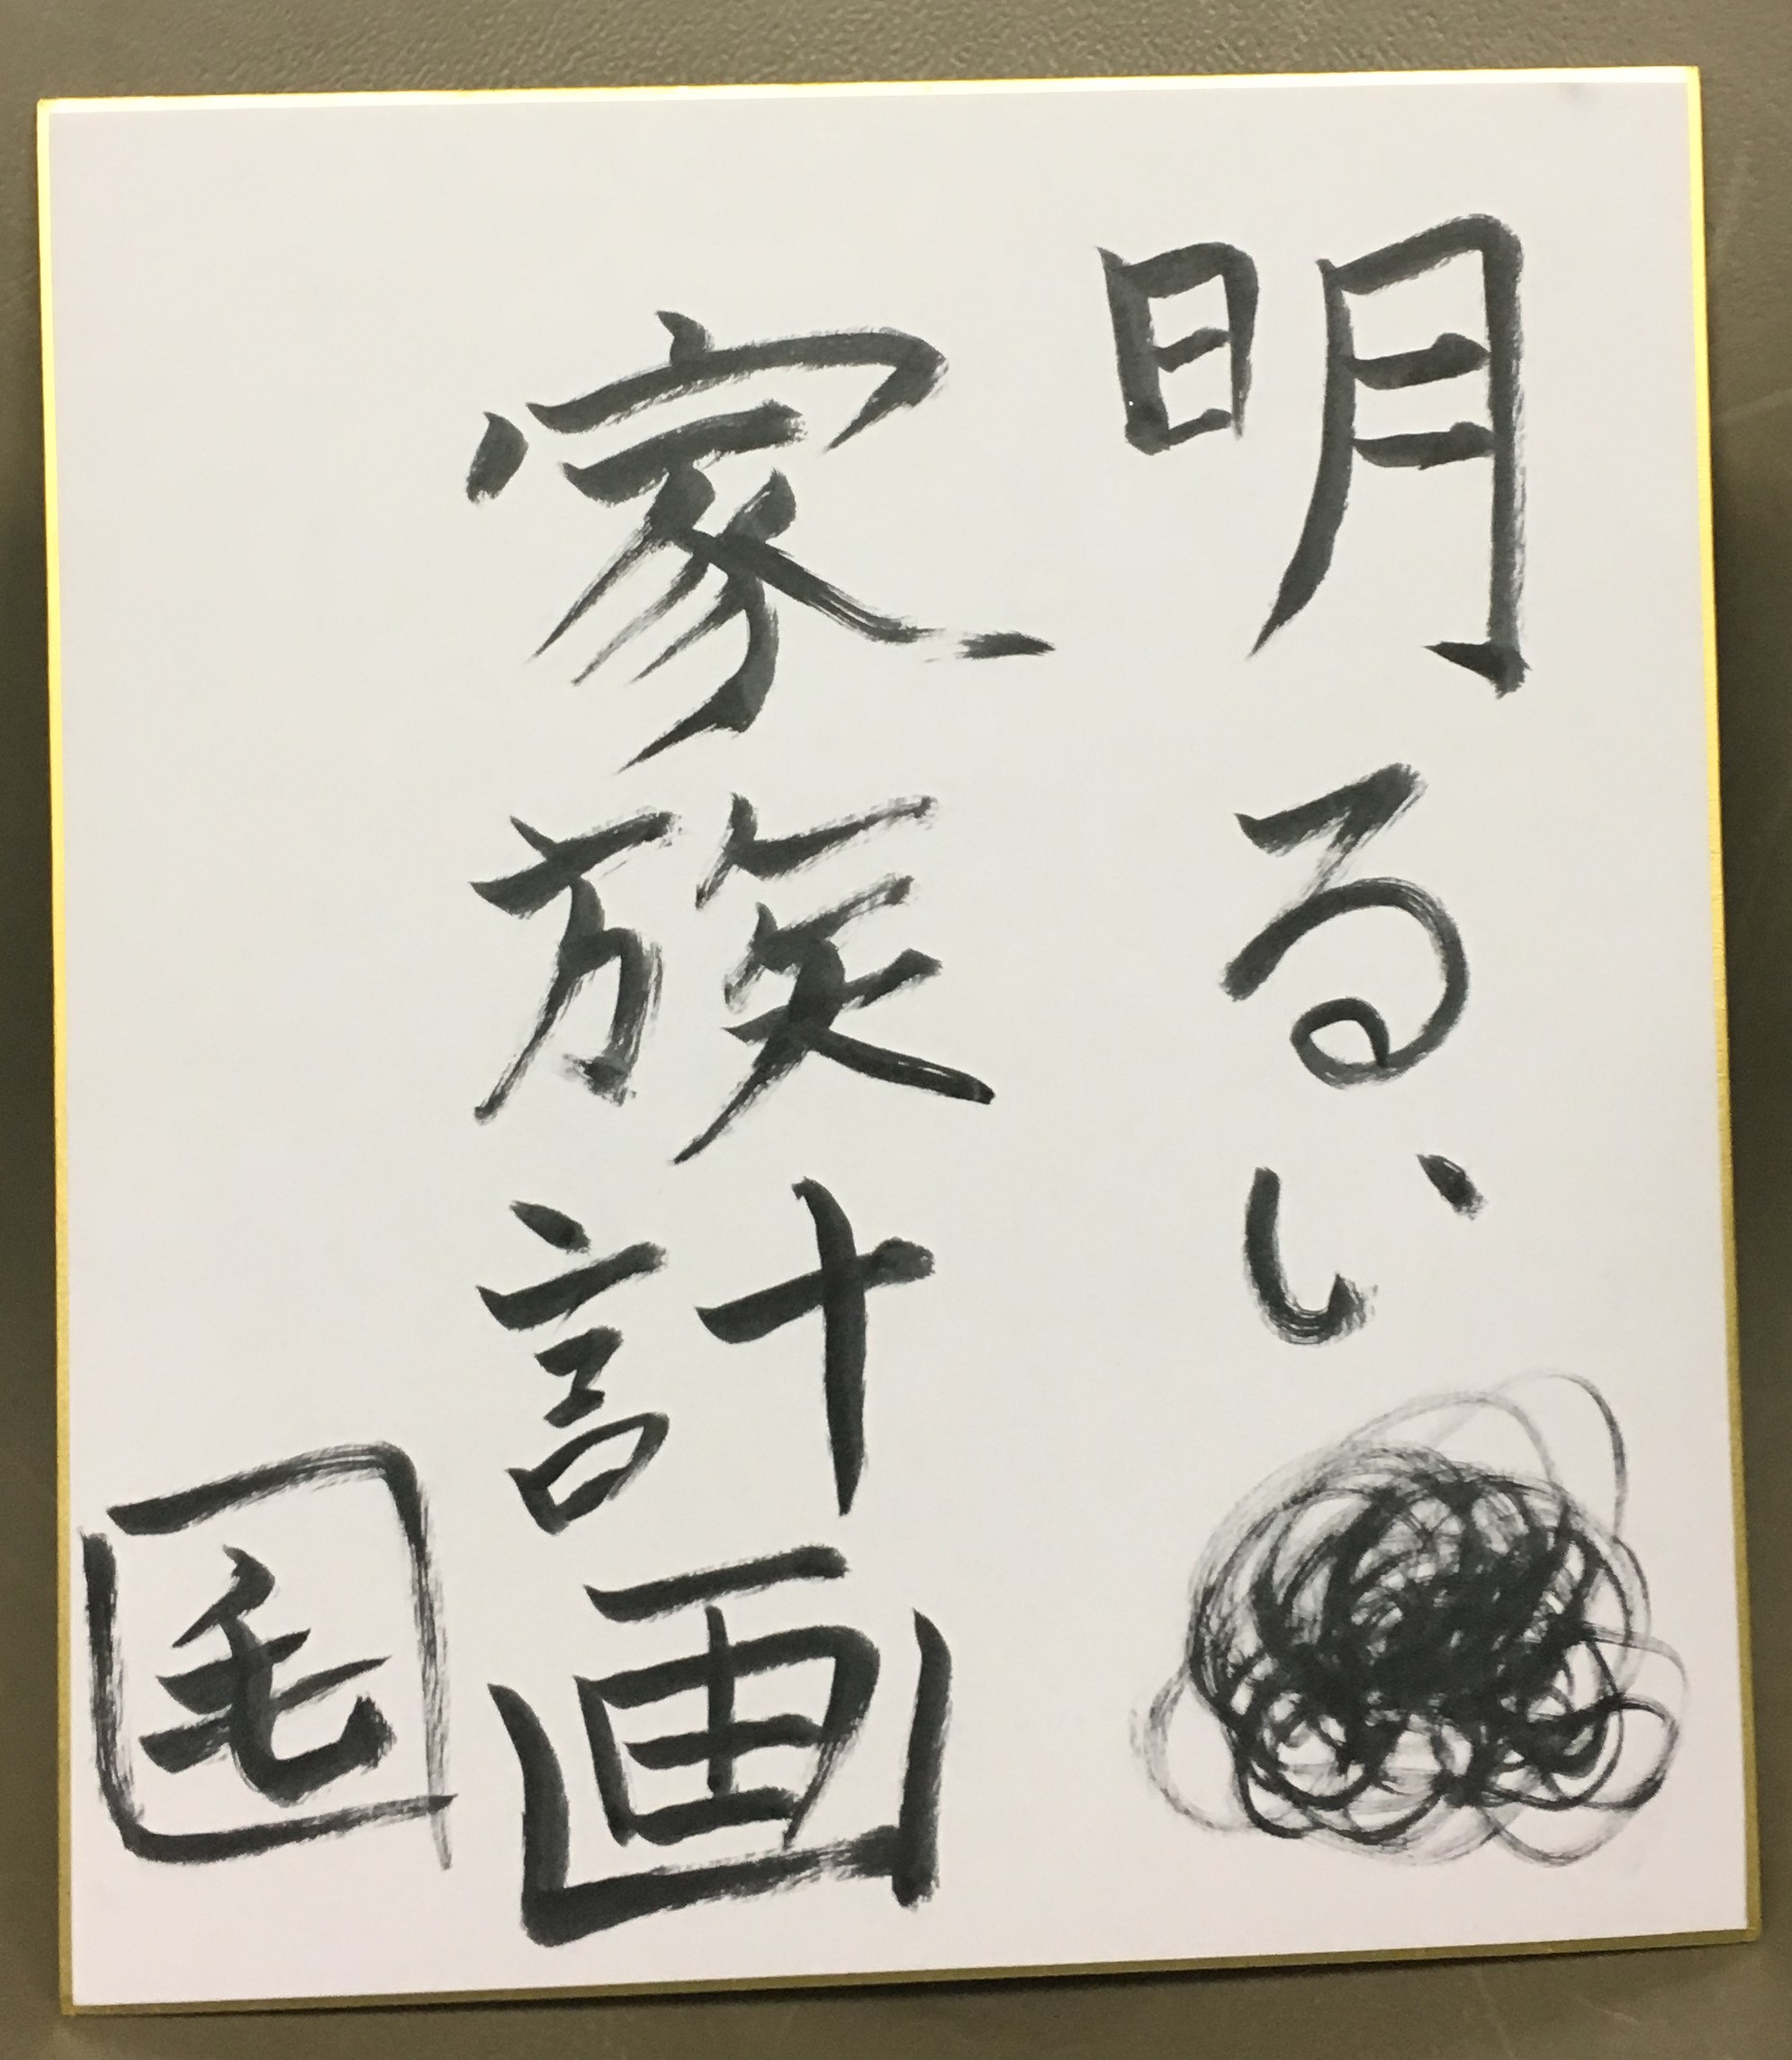 明るい
家族計画
毛